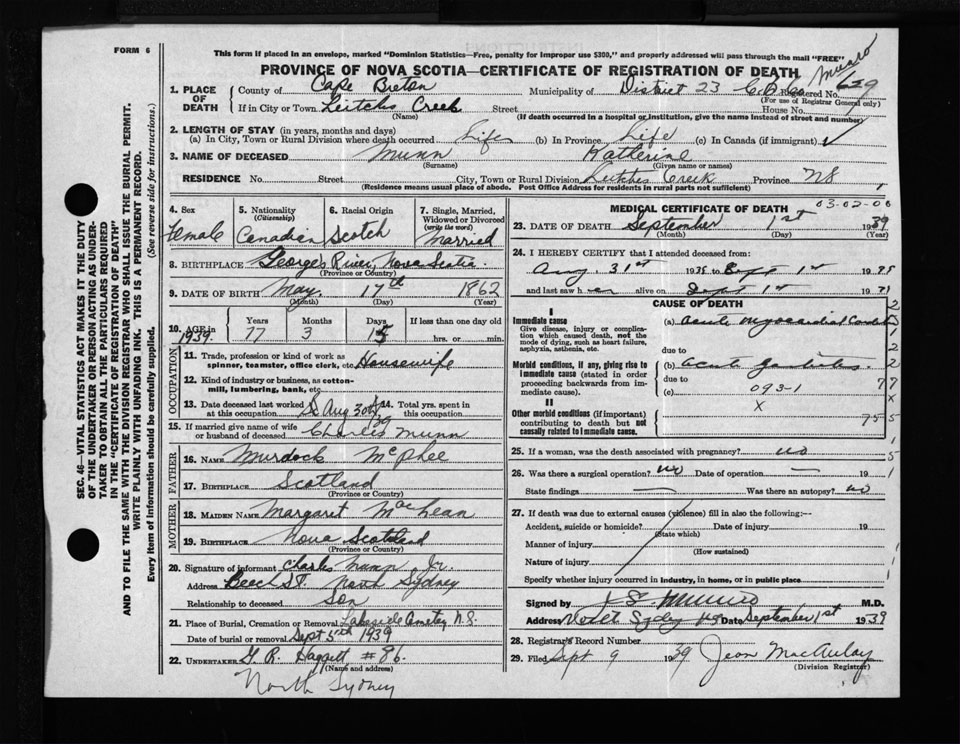 FORM 6
This form if placed in an envelope, marked "Dominion Statistics—Free, penalty for improper use $300," and properly addressed will pass through the mail "FREE"
PROVINCE OF NOVA SCOTIA—CERTIFICATE OF REGISTRATION OF DEATH
Munro
1. PLACE OF DEATH
County of Cape Breton Municipality of District 23 C.B. Co Registered No. 629
(For use of Registrar General only)
If in City or Town Leitchs Creek Street House No.
(Name) (If death occurred in a hospital or institution, give the name instead of street and number)
2. LENGTH OF STAY (in years, months and days)
(a) In City, Town or Rural Division where death occurred Life (b) In Province Life (c) In Canada (if immigrant)
3. NAME OF DECEASED Munn Katherine
(Surname) (Given name or names)
RESIDENCE No. Street City, Town or Rural Division Leitches Creek Province NS
(Residence means usual place of abode. Post Office Address for residents in rural parts not sufficient)
4. Sex Female
5. Nationality (Citizenship) Canadian
6. Racial Origin Scotch
7. Single, Married, Widowed or Divorced (write the word) Married
8. BIRTHPLACE Georges River, Nova Scotia
(Province or Country)
9. DATE OF BIRTH May 17th 1862
(Month) (Day) (Year)
10. AGE in 1939 Years 77 Months 3 Days 15 If less than one day hrs. or min.
OCCUPATION
11. Trade, profession or kind of work as spinner, teamster, office clerk, etc. Housewife
12. Kind of industry or business, as cotton-mill, lumbering, bank, etc.
13. Date deceased last worked at this occupation Aug 30th 39
14. Total yrs. spent in this occupation
15. If married give name of wife or husband of deceased Charles Munn
FATHER
16. NAME Murdock McPhee
17. BIRTHPLACE Scotland
(Province or Country)
MOTHER
18. MAIDEN NAME Margaret MacLean
19. BIRTHPLACE Nova Scotland
(Province or Country)
20. Signature of informant Charles Munn Jr.
Address Beech St. North Sydney
Relationship to deceased Son
21. Place of Burial, Cremation or Removal Lakeside Cemetery N.S.
Date of burial or removal Sept 5th 1939
22. UNDERTAKER G. R. Haggett #86.
(Name and address)
North Sydney
MEDICAL CERTIFICATE OF DEATH 03-02-06
23. DATE OF DEATH September 1st 1939
(Month) (Day) (Year)
24. I HEREBY CERTIFY that I attended deceased from:
Aug. 31st 19 to Sept 1st 19
and last saw her alive on Sept 1st 19
CAUSE OF DEATH
I
Immediate cause
Give disease, injury or complication which caused death, not the mode of dying, such as heart failure, asphyxia, asthenia, etc.
(a) Acute Myocardial
due to
Morbid conditions, if any, giving rise to immediate cause (stated in order proceeding backwards from immediate cause)
(b) Acute
due to
(c) 093-1
X
II
Other morbid conditions (if important) contributing to death but not causally related to immediate cause.
25. If a woman, was the death associated with pregnancy? no
26. Was there a surgical operation? no Date of operation — 19
State findings — Was there an autopsy? no
27. If death was due to external causes (violence) fill in also the following:—
Accident, suicide or homicide? Date of injury 19
(State which)
Manner of injury
(How sustained)
Nature of injury
Specify whether injury occurred in industry, in home, or in public place
Signed by Munro M.D.
Address North Sydney NS Date September 1st 1939
28. Registrar's Record Number
29. Filed Sept 9 1939 Jean MacAulay
(Division Registrar)
SEC. 46—VITAL STATISTICS ACT MAKES IT THE DUTY OF THE UNDERTAKER OR PERSON ACTING AS UNDERTAKER TO OBTAIN ALL THE PARTICULARS REQUIRED IN THE "CERTIFICATE OF REGISTRATION OF DEATH" AND TO FILE THE SAME WITH THE DIVISION REGISTRAR WHO SHALL ISSUE THE BURIAL PERMIT.
WRITE PLAINLY WITH UNFADING INK. THIS IS A PERMANENT RECORD.
Every item of information should be carefully supplied. (See reverse side for instructions.)